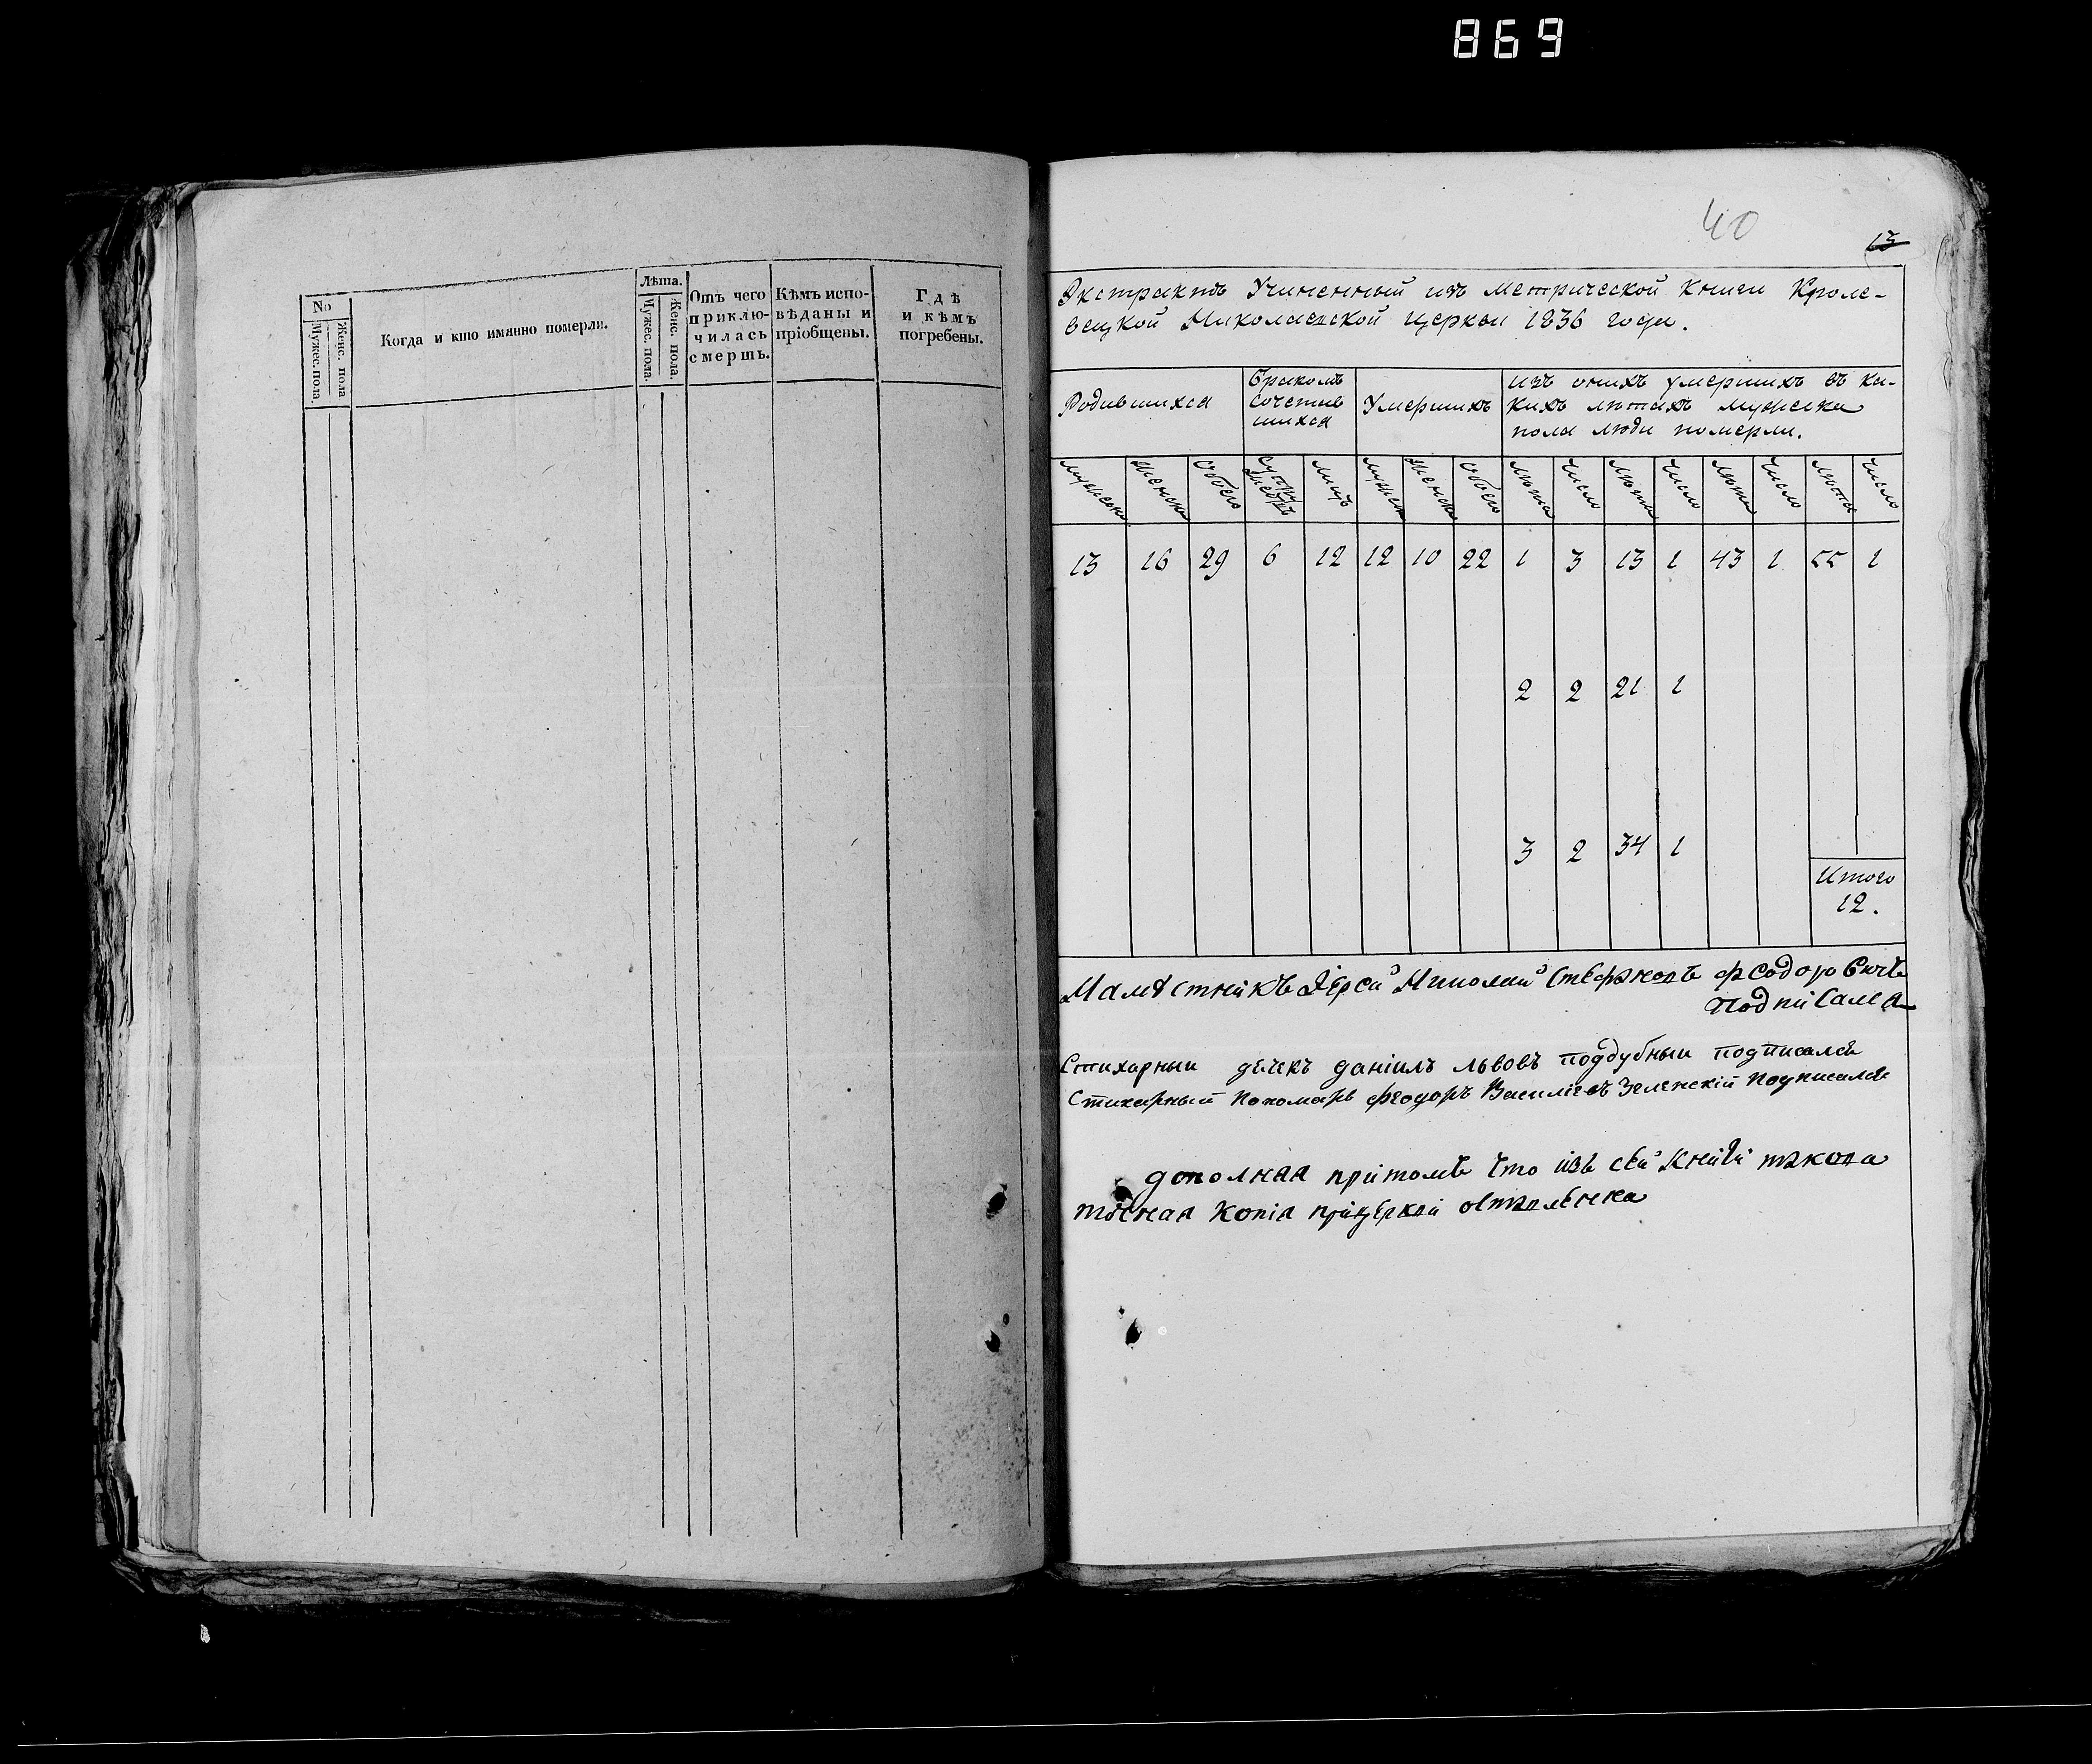 869
No
Мужес. пола.
Женс. пола
Когда и кто имянно померли.
Лѣта.
Мужес. пола.
Женс. пола.
Отъ чего
приклю-
чилась
смерть.
Кѣмъ испо-
вѣданы и
пріобщены.
Гдѣ
и кѣмъ
погребены.
40
13
Экстрактъ Учиненный изъ метрической книги Кроле-
вецкой Николаевской церкви 1836 года.
Родившихся
Бракомъ
сочетав
шихся
Умершихъ
изъ оныхъ умершихъ въ ка-
кихъ лѣтахъ мужеска
пола люди померли.
мужеска женска обоего супружествъ лицъ мужеска женска обоего лѣта число лѣта число лѣта число лѣта число
13 16 29 6 12 12 10 22 1 3 13 1 43 1 55 1
2 2 21 1
3 2 34 1
Итого
12.
Намѣстникъ Іерей Николай Стефановъ Федоровичъ
Подписался
Стихарный дячекъ даніилъ львовъ поддубный подписался
Стихарный Пономарь феодоръ Васильевъ Зеленскій Подписался
притомъ что изъ сей книги такова
точная копія при церкви оставленна